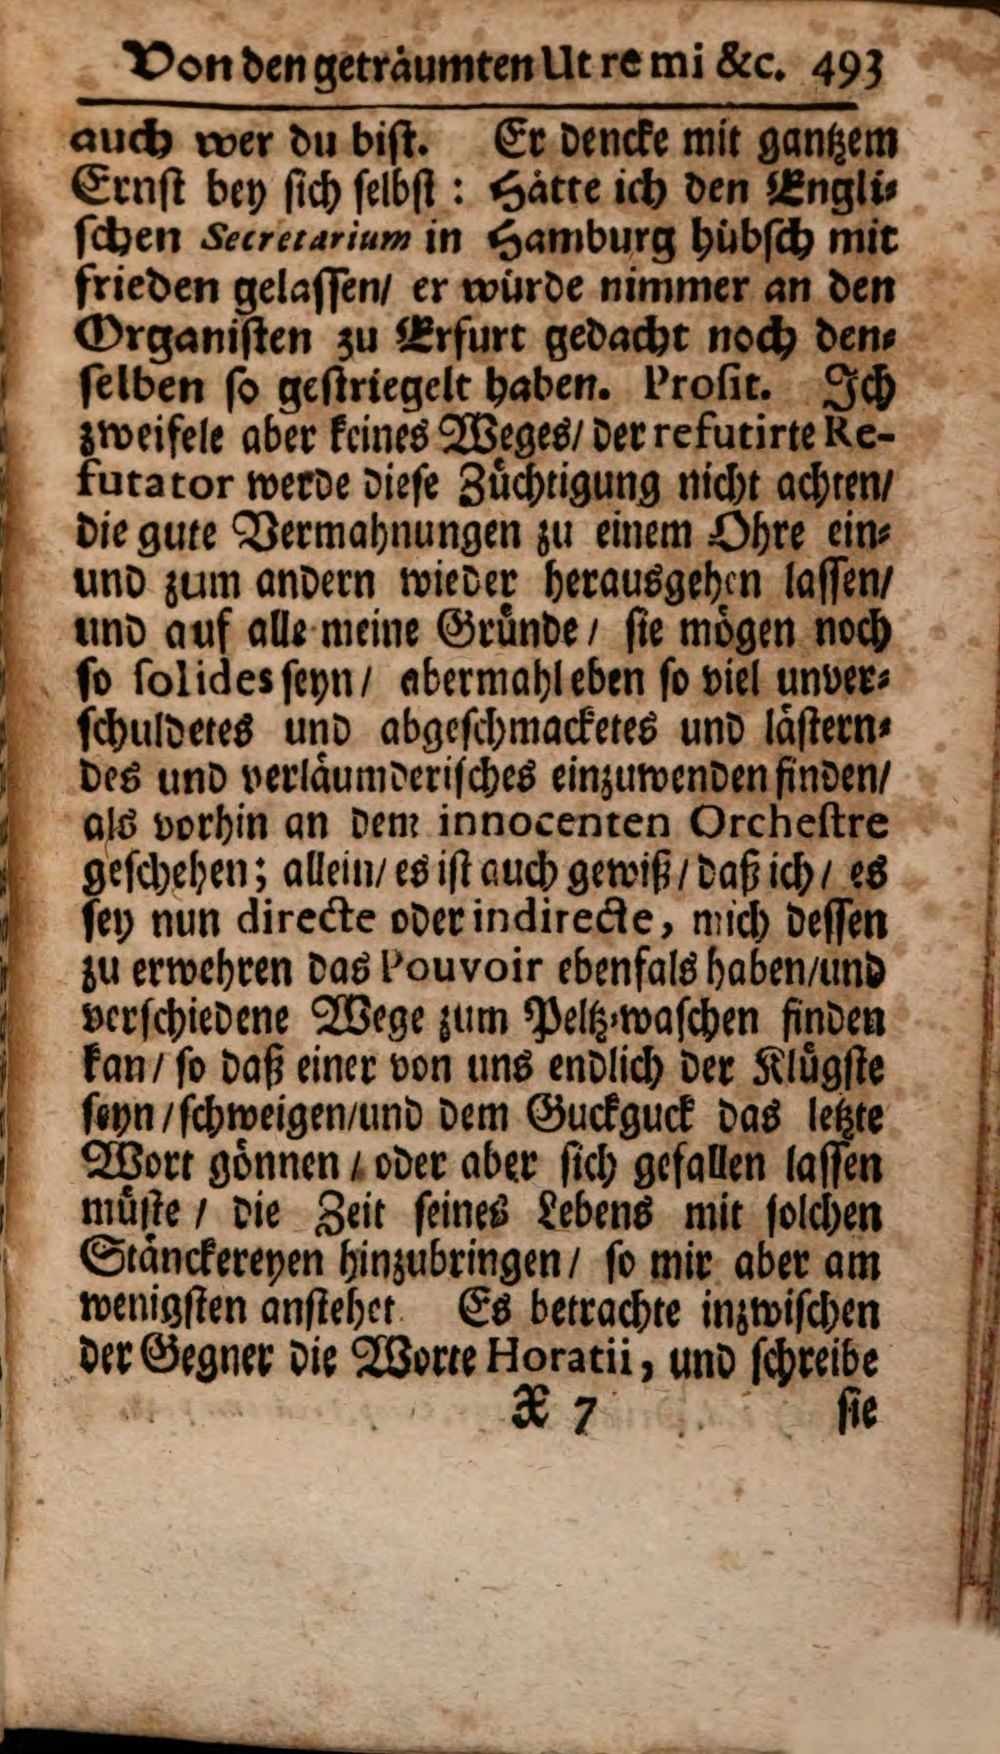 Von den geträumten Ut re mi &c. 493
auch wer du bist. Er dencke mit gantzem
Ernst bey sich selbst: Hätte ich den Engli-
schen Secretarium in Hamburg hübsch mit
frieden gelassen/ er würde nimmer an den
Organisten zu Erfurt gedacht noch den-
selben so gestriegelt haben. Prosit. Ich
zweifele aber keines Weges/ der refutirte Re-
futator werde diese Züchtigung nicht achten/
die gute Vermahnungen zu einem Ohre ein-
und zum andern wieder herausgehen lassen/
und auf alle meine Gründe / sie mögen noch
so solides seyn/ abermahl eben so viel unver-
schuldetes und abgeschmacketes und lästern-
des und verläumderisches einzuwenden finden/
als vorhin an dem innocenten Orchestre
geschehen; allein/ es ist auch gewiß/ daß ich/ es
sey nun directe oder indirecte, mich dessen
zu erwehren das Pouvoir ebenfals haben/und
verschiedene Wege zum Peltz-waschen finden
kan/ so daß einer von uns endlich der Klügste
seyn/schweigen/und dem Guckguck das letzte
Wort gönnen / oder aber sich gefallen lassen
müste / die Zeit seines Lebens mit solchen
Stänckereyen hinzubringen/ so mir aber am
wenigsten anstehet. Es betrachte inzwischen
der Gegner die Worte Horatii, und schreibe
X 7 sie